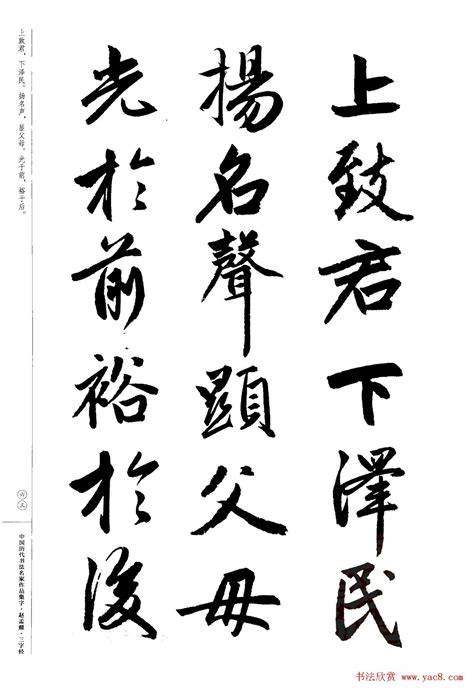 上致君下澤民
揚名聲顯父母
光於前裕於後
上致君，下泽民。扬名声，显父母。光于前，裕于后。
六五
中国历代书法名家作品集字·赵孟頫·三字经
书法欣赏 www.yac8.com